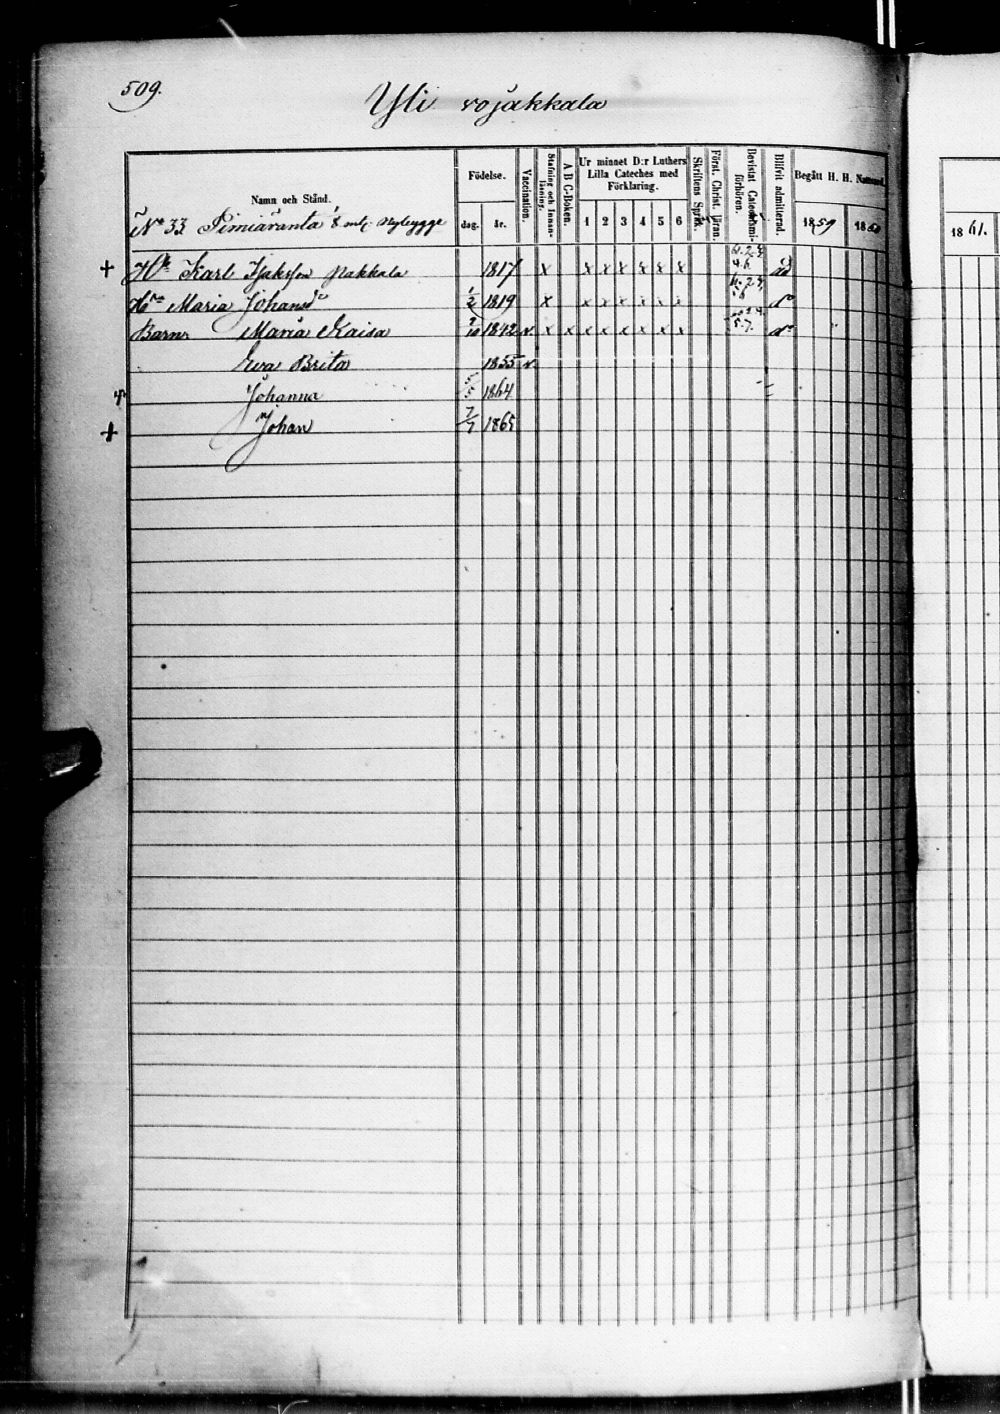 509.
Yli vojakkala
Namn och Stånd.
Födelse.
dag. år.
Vaccination.
Stafning och Innan-läsning.
A B C-Boken.
Ur minnet D:r Luthers Lilla Cateches med Förklaring.
1 2 3 4 5 6
Skriftens Språk.
Först. Christ. läran.
Bevistat Catechismi-förhören.
Blifvit admitterad.
Begått H. H. Nattvard
1859 1860
1861.
No 33 nybygge
+ Karl Nakkala 1817 x x x x x x x
Maria Johansdr 1/2 1819 x x x x x x x
Barn: Maria Kaisa 2/10 1842 v. x x x x x x x x
Eva Brita 1855 v.
+ Johanna 5/5 1864
+ Johan 7/7 1865